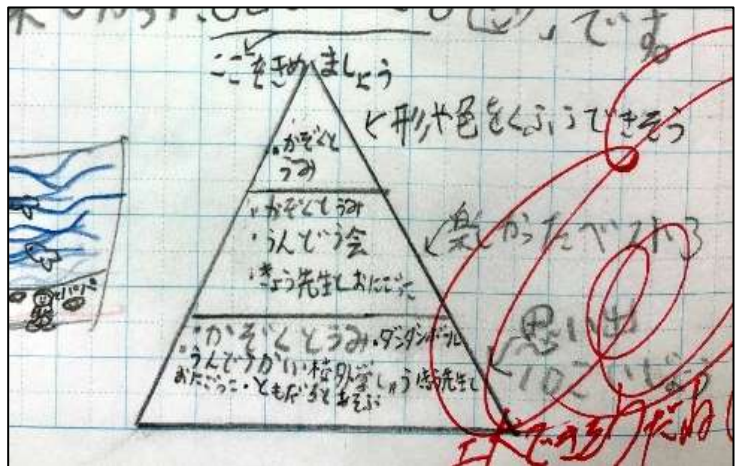 です
ここをきめましょう
←形や色をくふうできそう
・かぞくと
うみ
・かぞくとうみ
・うんどう会
・きょう先生とおにごっこ
←楽しかったベスト3
・かぞくとうみ・ダンダンボール
うんどうかい・校外学しゅう
先生と
おにごっこ・ともだちとあそぶ
←思い出
10こいじょう
パパ